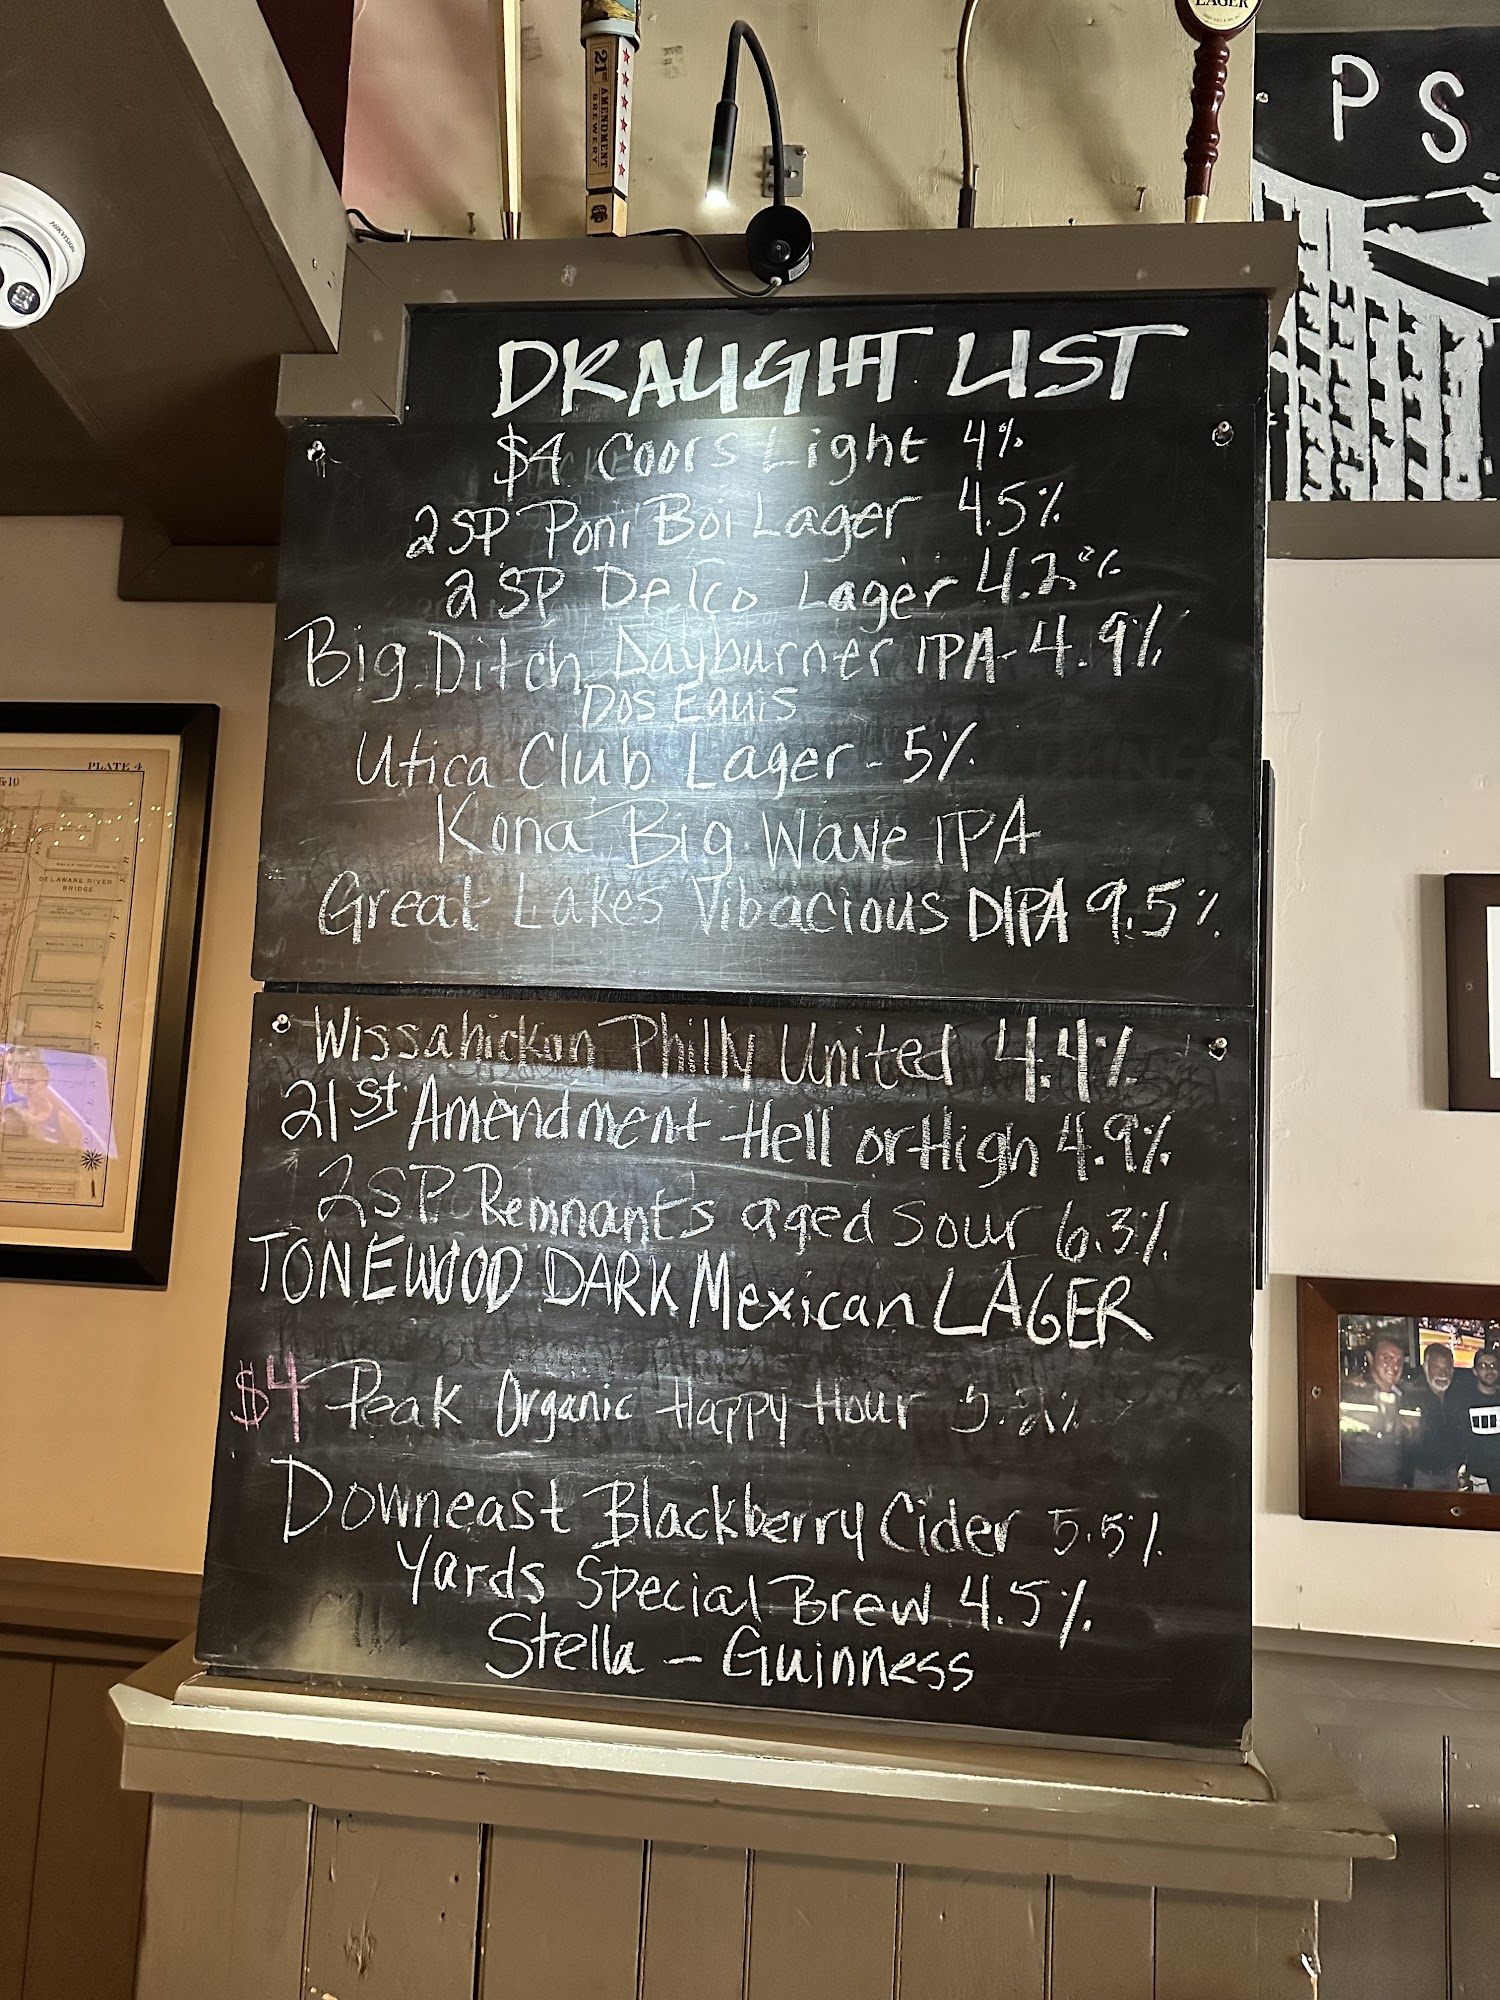 LAGER
21ST AMENDMENT
BREWERY
HIKVISION
P S
DRAUGHT LIST
$4 Coors Light 4%
2SP Poni Boi Lager 4.5%
2SP Delco Lager 4.2%
Big Ditch Dayburner IPA - 4.9%
Dos Equis
Utica Club Lager - 5%
Kona Big Wave IPA
Great Lakes Vibacious DIPA 9.5%
Wissahickon Philly United 4.4%
21st Amendment Hell or High 4.9%
2SP Remnants aged sour 6.3%
TONEWOOD DARK Mexican LAGER
$4 Peak Organic Happy Hour 5.2%
Downeast Blackberry Cider 5.5%
Yards Special Brew 4.5%
Stella - Guinness
PLATE 4
DELAWARE RIVER
BRIDGE